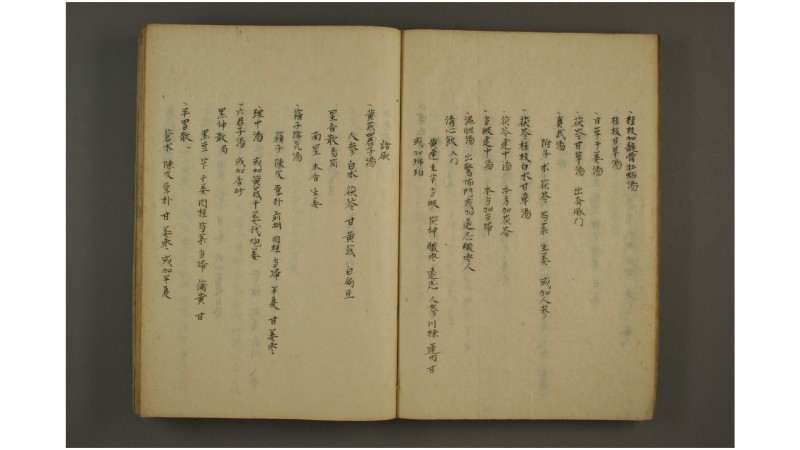 桂枝加龍骨牡蛎湯
桂枝甘草湯
甘草干姜湯
茯苓甘草湯 出奔豚門
真武湯
附子 朮 茯苓 芍薬 生姜 或加人参
茯苓桂枝白朮甘草湯
茯苓建中湯 本方加茯苓
当帰建中湯 本方加当帰
温胆湯 出驚悸門 或加遠志酸枣人
清心飲 入門
黄連 生芐 当帰 茯神 酸枣 遠志 人参 川芎 蓮肉 甘
或加琥珀
諸厥
黄芪四君子湯
人参 白朮 茯苓 甘 黄芪 白扁豆
星香散 易简
南星 木香 生姜
蘓子降気湯
蘓子 陳皮 厚朴 前胡 肉桂 当帰 半夏 甘 姜枣
理中湯 或加黄芪干姜代炮姜
六君子湯 或加香砂
黒神散 局
黒豆 芐 干姜 肉桂 芍薬 当帰 蒲黄 甘
平胃散
蒼朮 陳皮 厚朴 甘 姜枣 或加半夏